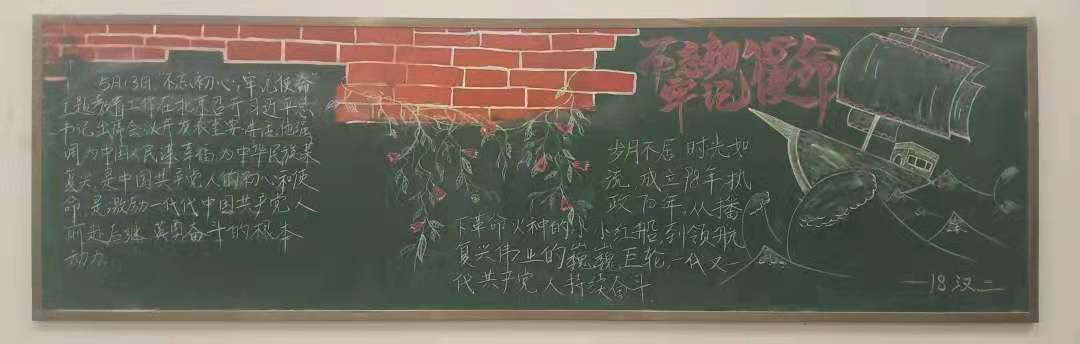 5月13日"不忘初心、牢记使命"
主题教育工作在北京召开习近平总
书记出席会议并发表重要讲话,他强
调,为中国人民谋幸福,为中华民族谋
复兴,是中国共产党人的初心和使
命,是激励一代代中国共产党人
前赴后继、英勇奋斗的根本
动力。
不忘初心
牢记使命
岁月不居,时光如
流,成立98年,执
政70年,从播
下革命火种的小小红船,到领航
复兴伟业的巍巍巨轮,一代又一
代共产党人持续奋斗
—18汉二